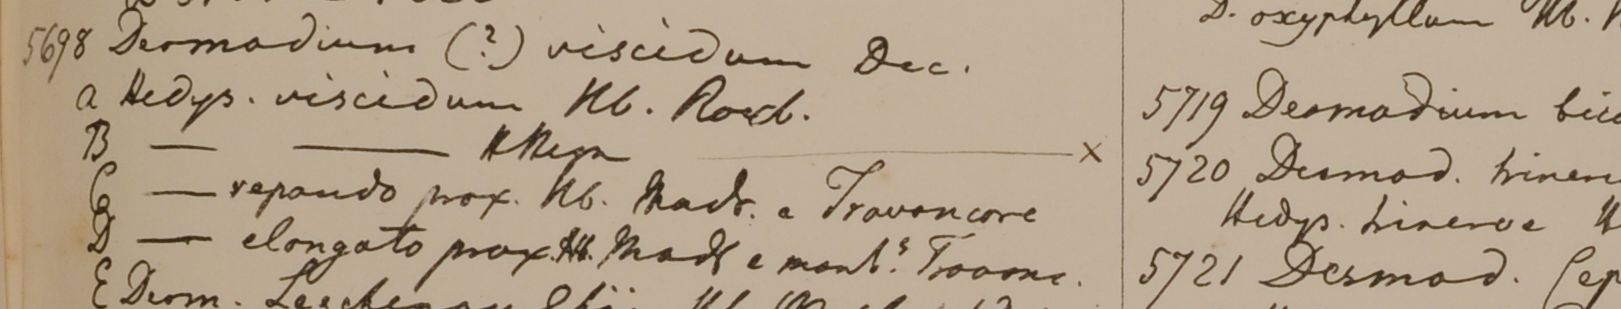 5698 Desmodium (?) viscidum Dec.
a Hedys. viscidum Hb. Roxb.
B — — H Heyn — ×
C — repando prox. Hb. Madr. e Travancore
D — elongato prox. Hb. Madr e mont.s Travanc.
E Desm.
D. oxyphyllum Hb.
5719 Desmodium
5720 Desmod. trinerv
Hedys. trinerve H
5721 Desmod. Cep